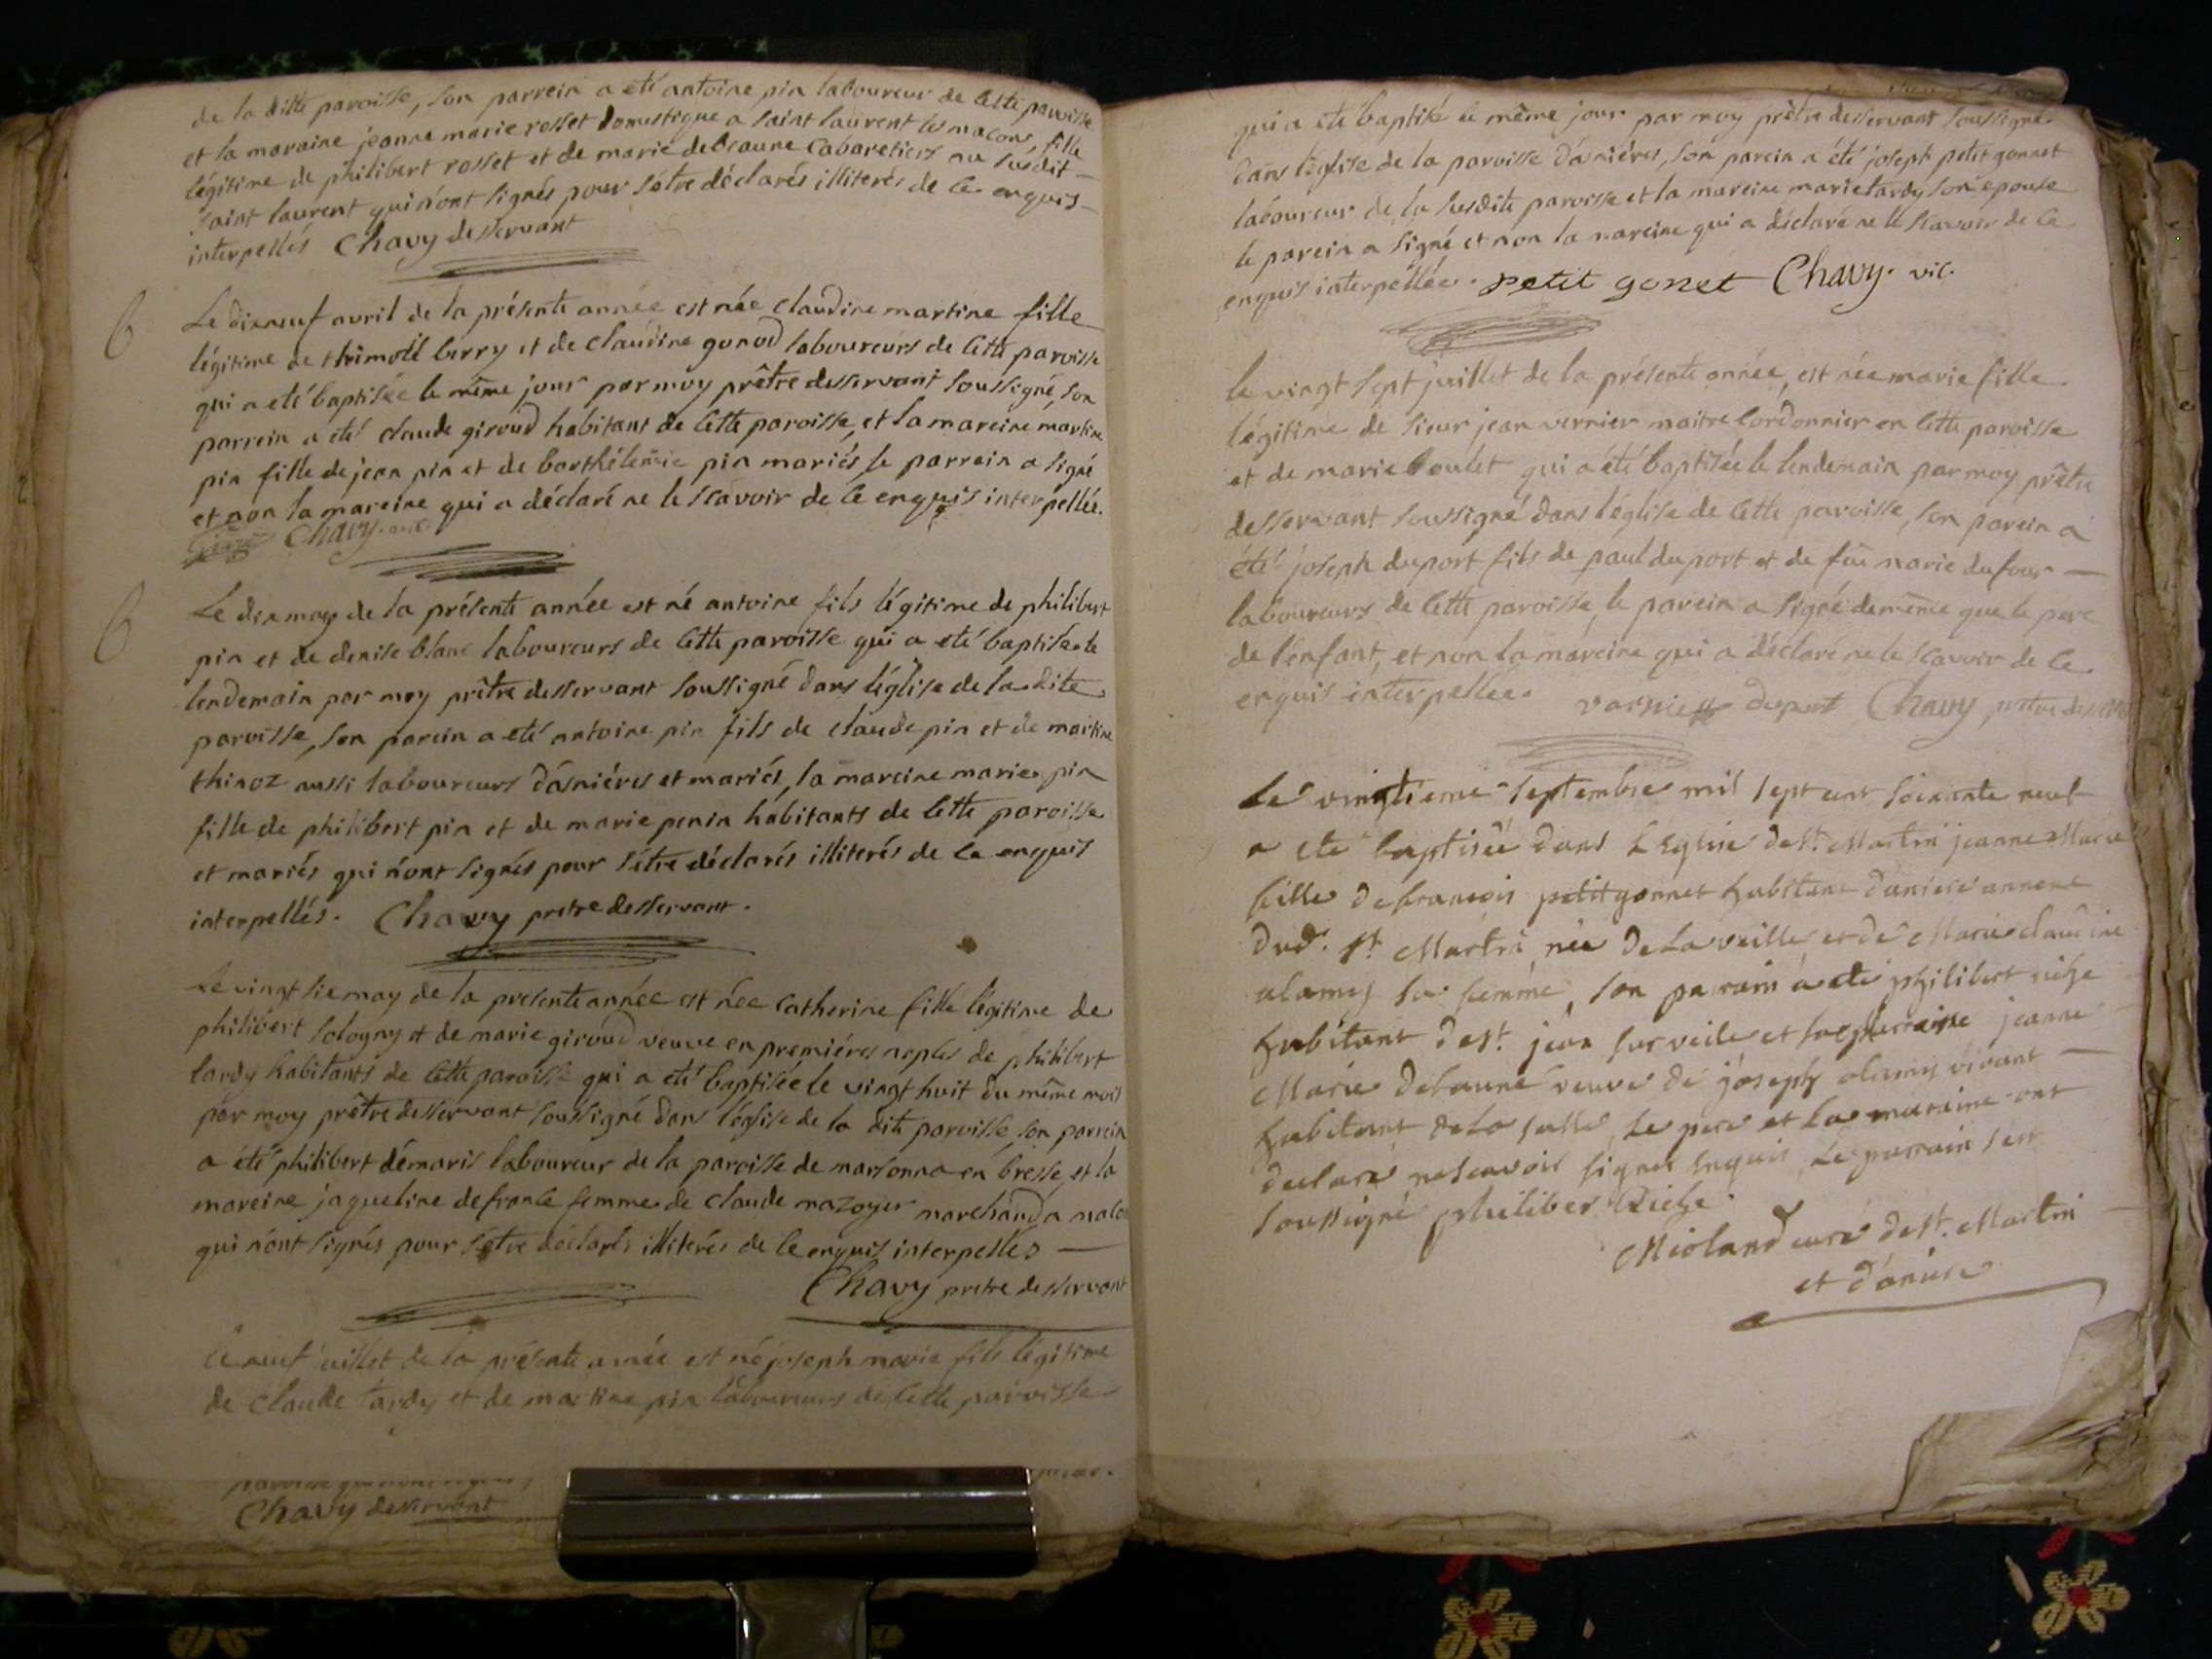 de la ditte paroisse, son parrein a eté antoine pin laboureur de cette paroisse
et la maraine jeanne marie rosset domestique a saint laurent les macons, fille
légitime de philibert rosset et de marie debeaune cabaretiers au susdit
saint laurent qui n'ont signés pour s'être déclarés illiterés de ce enquis
interpellés Chavy desservant
Le dixneuf avril de la présente année est née claudine martine fille
légitime de thimoté berry et de claudine gonod laboureurs de cette paroisse
qui a eté baptisée le même jour par moy prêtre desservant soussigné, son
parrein a eté claude giroud habitant de cette paroisse, et la mareine martine
pin fille de jean pin et de barthélemie pin mariés le parrein a signé
et non la mareine qui a déclaré ne le scavoir de ce enquis interpellée.
Chavy
Le dix may de la présente année est né antoine fils légitime de philibert
pin et de denise blanc laboureurs de cette paroisse qui a eté baptisé le
lendemain par moy prêtre desservant soussigné dans l'église de la dite
paroisse, son parein a eté antoine pin fils de claude pin et de martine
thinoz aussi laboureurs d'asniéres et mariés, la mareine marie pin
fille de philibert pin et de marie penin habitants de cette paroisse
et mariés qui n'ont signés pour s'être déclarés illiterés de ce enquis
interpellés. Chavy pretre desservant.
Le vingt six may de la presente année est née catherine fille légitime de
philibert sologny et de marie giroud veuve en premiéres noples de philibert
lardy habitants de cette paroisse qui a eté baptisée le vingt huit du même mois
par moy prêtre desservant soussigné dans l'église de la dite paroisse, son parrein
a été philibert démaris laboureur de la paroisse de marsonna en bresse, et la
mareine jaqueline defrance femme de claude mazoyer marchand a
qui n'ont signés pour s'etre déclarés illiterés de ce enquis interpellés
Chavy pretre desservant
Le neuf juillet de la présente année est né joseph marie fils légitime
de claude tardy et de martine pin laboureurs de cette paroisse
Chavy desservant
qui a eté baptisé le même jour par moy prêtre desservant soussigné
dans l'église de la paroisse d'asniéres, son parein a été joseph petit gonnet
laboureur de la susdite paroisse et la mareine marie tardy son epouse
le parein a signé et non la mareine qui a déclaré ne le scavoir de ce
enquis interpellée. petit gonet Chavy. vic.
le vingt sept juillet de la présente année, est née marie fille
légitime de sieur jean vernier maitre cordonnier en cette paroisse
et de marie boulet qui a été baptisée le lendemain par moy prêtre
desservant soussigné dans l'église de cette paroisse, son parein a
été joseph duport fils de paul duport et de marie dufour
laboureurs de cette paroisse, le parein a signé de même que le pere
de l'enfant, et non la mareine qui a déclaré ne le scavoir de ce
enquis interpellée. duport Chavy
Le vingtieme septembre mil sept cent soixante neuf
a ete baptisée dans L'Eglise de st. Martin jeanne Marie
fille de françois petitgonnet habitant d'aniere annexe
dud. st Martin, née de La veille et de Marie claudine
alamey sa femme, son parrain a ete philibert riche
habitant de st. jean sur veile et sa marraine jeanne
Marie debaune veuve de joseph alamey vivant
habitant de La salle, Le pere et La maraine ont
declaré ne scavoir signer enquis, Le parrain s'est
soussigné philiber Riche
Mioland curé de st. Martin
et d'aniere